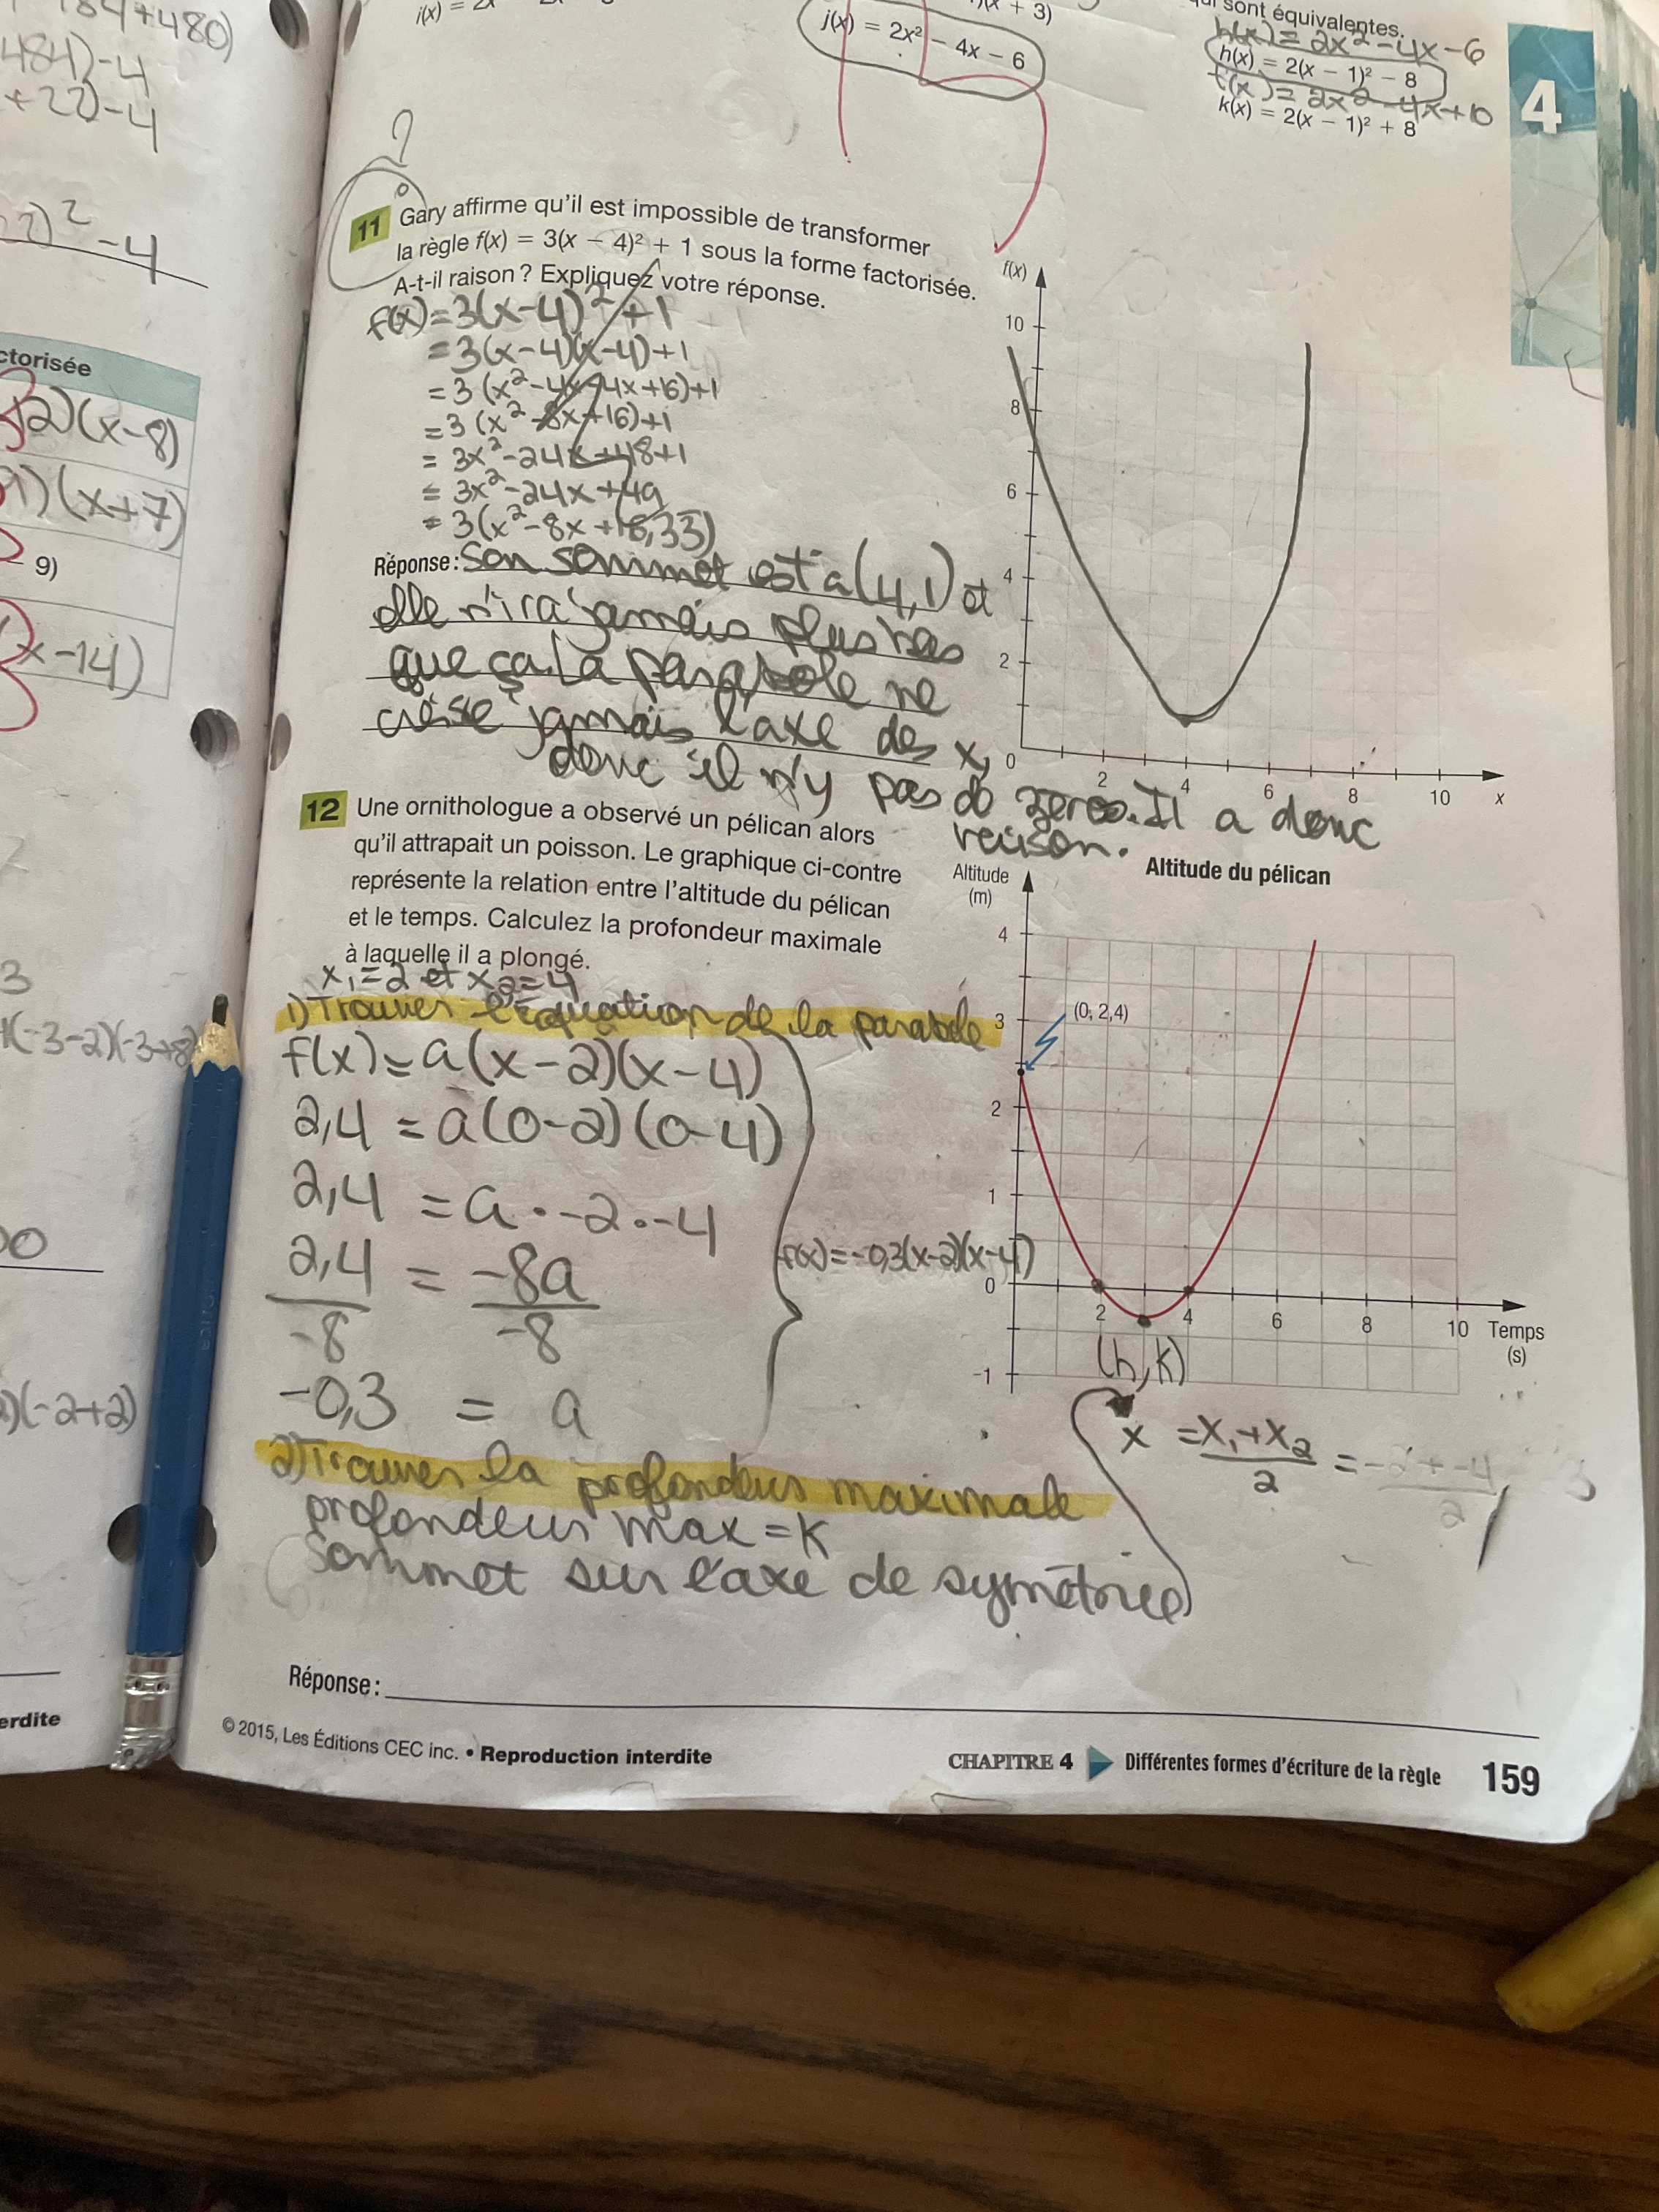 84+480)
484)-4
+22)-4
2)² -4
ctorisée
+2)(x-8)
(x+7)
9)
x-14)
3
(-3-2)(-3+8)
00
)(-2+2)
erdite
j(x) = 2x² - 4x - 6
x + 3)
sont équivalentes.
h(x) = 2x² - 4x - 6
h(x) = 2(x - 1)² - 8
f(x) = 2x² - 4x + 10
k(x) = 2(x - 1)² + 8
4
?
11 Gary affirme qu'il est impossible de transformer
la règle f(x) = 3(x - 4)² + 1 sous la forme factorisée.
A-t-il raison ? Expliquez votre réponse.
f(x) = 3(x-4)² + 1
= 3(x-4)(x-4)+1
= 3(x²-4x-4x+16)+1
= 3(x²-8x+16)+1
= 3x²-24x+48+1
= 3x²-24x+49
= 3(x²-8x+16,33)
Réponse : Son sommet est à (4,1) et
elle n'ira jamais plus bas
que ça. La parabole ne
croise jamais l'axe des x,
donc il n'y pas de zéros. Il a donc
raison.
f(x)
10
8
6
4
2
0
2 4 6 8 10 x
12 Une ornithologue a observé un pélican alors
qu'il attrapait un poisson. Le graphique ci-contre
représente la relation entre l'altitude du pélican
et le temps. Calculez la profondeur maximale
à laquelle il a plongé.
x₁=2 et x₂=4
1) Trouver l'équation de la parabole
f(x) = a(x-2)(x-4)
2,4 = a(0-2)(0-4)
2,4 = a·-2·-4
2,4 = -8a
-8 -8
-0,3 = a
f(x)=-0,3(x-2)(x-4)
2) Trouver la profondeur maximale
profondeur max = k
Sommet sur l'axe de symétrie
Altitude du pélican
Altitude
(m)
4
3
(0, 2,4)
2
1
0
2 4 6 8 10 Temps
(s)
-1
(h, k)
x = x₁+x₂ = -2+-4 3
2 2
Réponse :
© 2015, Les Éditions CEC inc. • Reproduction interdite
CHAPITRE 4 Différentes formes d'écriture de la règle 159